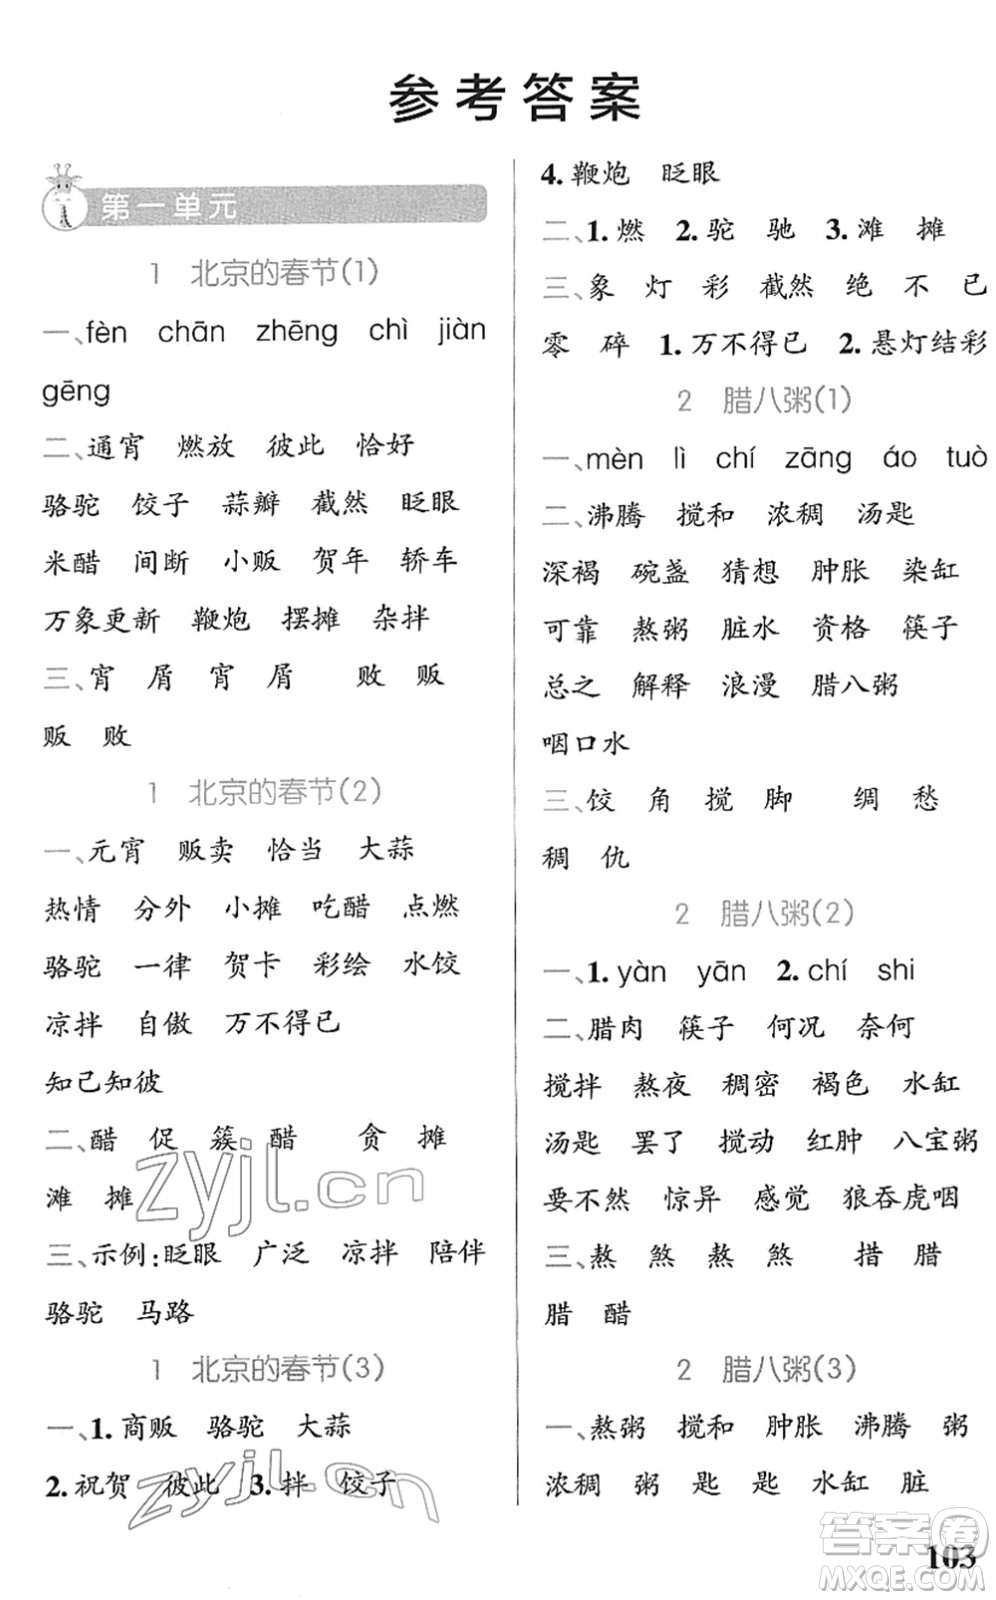 参考答案
第一单元
1 北京的春节(1)
一、fèn chān zhēng chì jiàn
gēng
二、通宵 燃放 彼此 恰好
骆驼 饺子 蒜瓣 截然 眨眼
米醋 间断 小贩 贺年 轿车
万象更新 鞭炮 摆摊 杂拌
三、宵 屑 宵 屑 败 贩
贩 败
1 北京的春节(2)
一、元宵 贩卖 恰当 大蒜
热情 分外 小摊 吃醋 点燃
骆驼 一律 贺卡 彩绘 水饺
凉拌 自傲 万不得已
知己知彼
二、醋 促 簇 醋 贪 摊
滩 摊
三、示例:眨眼 广泛 凉拌 陪伴
骆驼 马路
1 北京的春节(3)
一、1. 商贩 骆驼 大蒜
2. 祝贺 彼此 3. 拌 饺子
4. 鞭炮 眨眼
二、1. 燃 2. 驼 驰 3. 滩 摊
三、象 灯 彩 截然 绝 不 已
零 碎 1. 万不得已 2. 悬灯结彩
2 腊八粥(1)
一、mèn lì chí zāng áo tuò
二、沸腾 搅和 浓稠 汤匙
深褐 碗盏 猜想 肿胀 染缸
可靠 熬粥 脏水 资格 筷子
总之 解释 浪漫 腊八粥
咽口水
三、饺 角 搅 脚 绸 愁
稠 仇
2 腊八粥(2)
一、1. yàn yān 2. chí shi
二、腊肉 筷子 何况 奈何
搅拌 熬夜 稠密 褐色 水缸
汤匙 罢了 搅动 红肿 八宝粥
要不然 惊异 感觉 狼吞虎咽
三、熬 煞 熬 煞 措 腊
腊 醋
2 腊八粥(3)
一、熬粥 搅和 肿胀 沸腾 粥
浓稠 粥 匙 匙 水缸 脏
103
zyjl.cn
zyjl.cn
答案圈
MXQE.COM